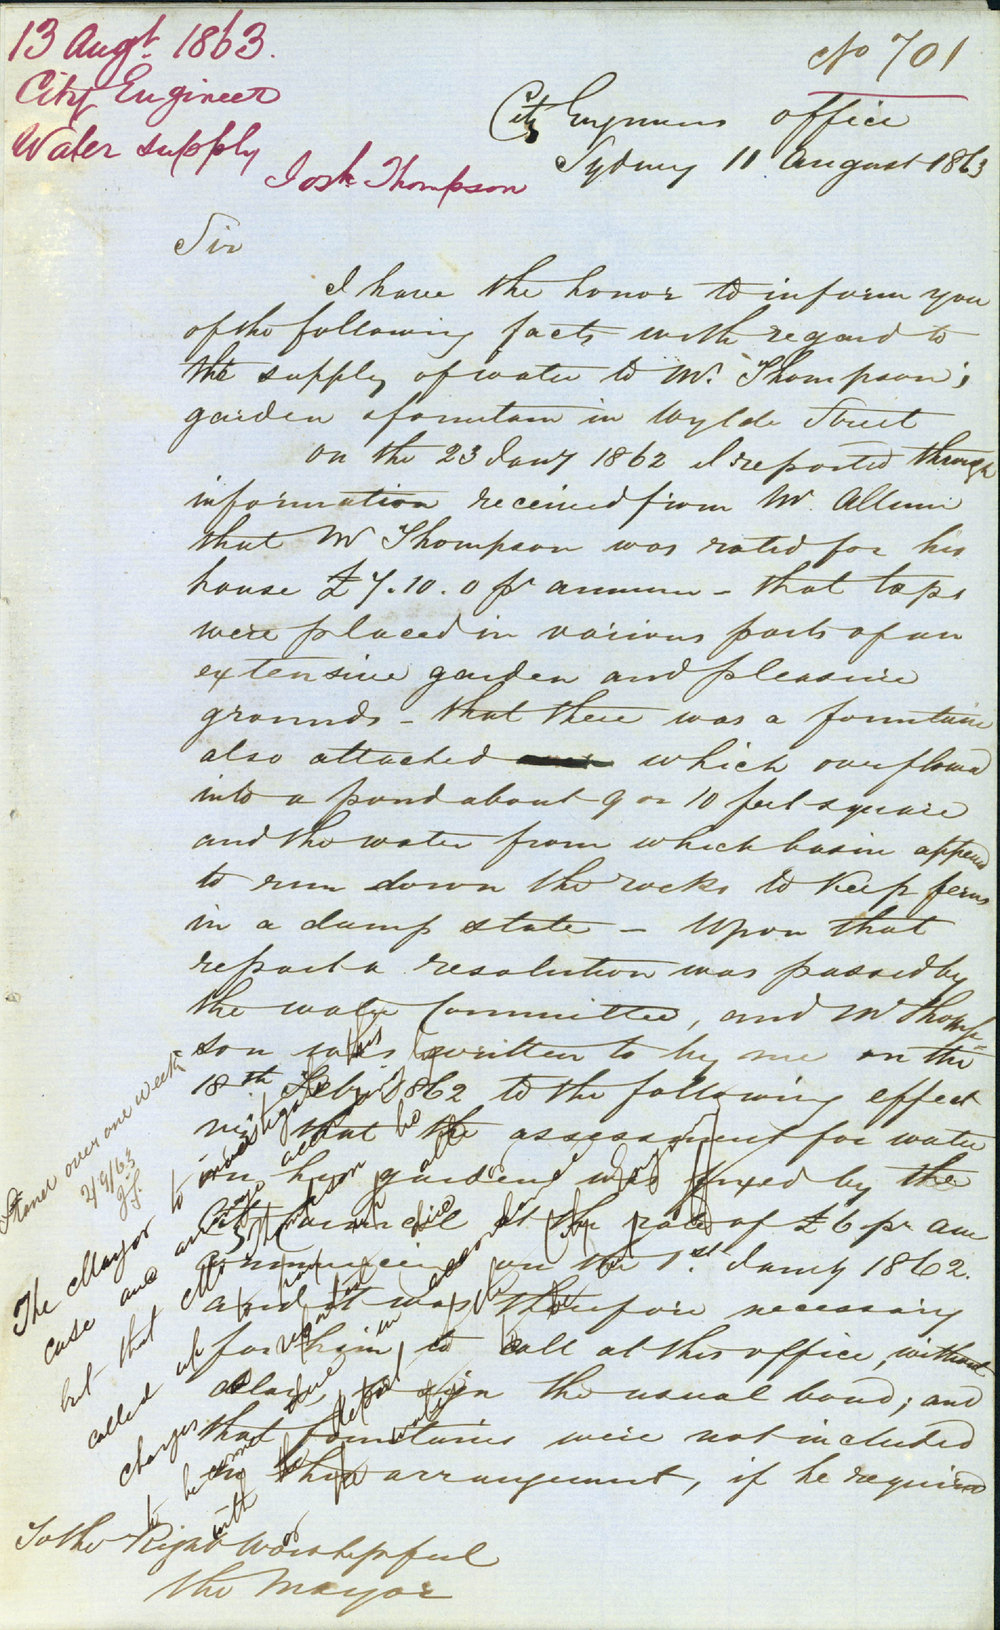 13 Augt. 1863.
City Engineer
Water supply
Josh Thompson
No 701
City Engineers office
Sydney 11 August 1863
Sir
I have the honor to inform you
of the following facts with regard to
the supply of water to Mr. Thompson's
garden & fountain in Wylde Street
On the 23 Jany 1862 I reported through
information received from Mr.
that Mr Thompson was rated for his
house £7.10.0 pr annum - that taps
were placed in various parts of an
extensive garden and pleasure
grounds - that there was a fountain
also attached which overflowed
into a pond about 9 or 10 feet square
and the water from which basin appeared
to run down the rocks to keep ferns
in a damp state - Upon that
report a resolution was passed by
the water Committee, and Mr Thomp-
son was written to by me on the
18th Feby 1862 to the following effect
viz that the assessment for water
in his garden was fixed by the
City Council at the rate of £6 pr ann
commencing on the 1st Jany 1862.
and it was therefore necessary
for him to call at this office, without
delay to sign the usual bond; and
that fountains were not included
in this arrangement, if he required
To the Right Worshipful
the Mayor
over one week
2/9/63
The Mayor to investigate this
case and
but that Mr Thompson be
called up to pay all
charges